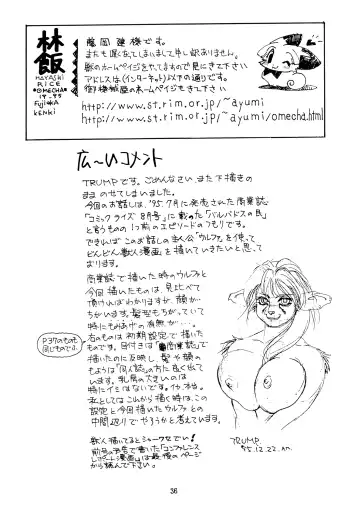 林飯
HAYASHI
RICE
@OMECHA@
19-95
FUJIOKA
KENKI
藤岡建機です。
またも遅れてしまいまして申し訳ありません。
私のホームページをやってますので見にきて下さい
アドレスは(インターネット)以下の通りです。
御機城屋のホームページもきて下さい
http://www.st.rim.or.jp/~ayumi
http://www.st.rim.or.jp/~ayumi/omecha.html
広〜いコメント
TRUMPです。ごめんなさい、また下描きの
ままのせてしまいました。
今回のお話しは、'95.7月に発売された商業誌
「コミックライズ8月号」に載った「バルバドスの民」
と言うものの1つ前のエピソードのつもりです。
できればこのお話しの主人公「ウルファ」を使って
どんどん獣人漫画を描いていきたいと思って
おります。
商業誌で描いた時のウルファと
今回描いたものは、見比べて
頂ければわかりますが、顔が
ちがいます。髪型もちがっていて
特にもみあげの有無が……。
右のものは初期設定で描いた
ものです。目付きは「商業誌」で
描いたのに反映し、髪や顔の
もようは「同人誌」の方に良く出て
います。乳房の大きいのは
特にイミはないです。イヤ、本当。
私としてはこれから描く時は、この
設定と今回描いたウルファとの
中間辺りでやろうかと考えています。
P37のものも
同じものです。
獣人描いてるとシャーワセでい!
前号の予告で書いた「コンファレンス
レポート漫画」は最後のページ
から読んで下さい。
TRUMP
'95.12.22.
36